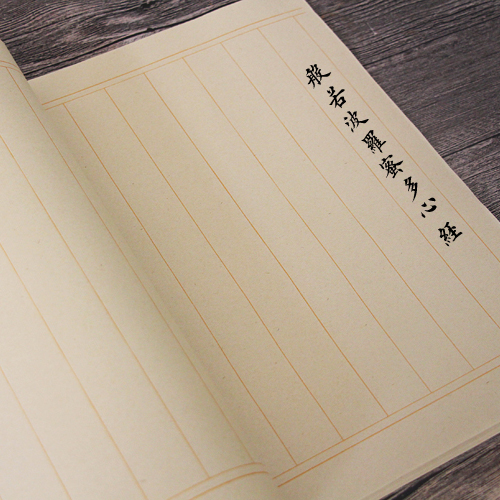 般若波羅蜜多心経